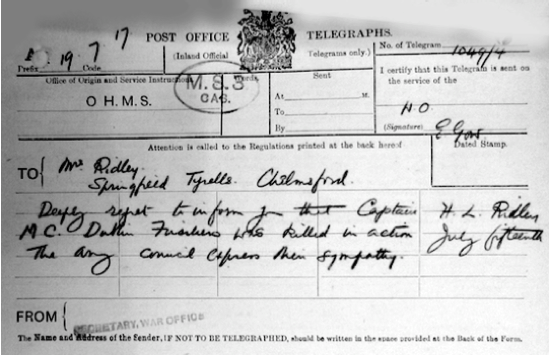 19 7 17
POST OFFICE TELEGRAPHS.
(Inland Official Telegrams only.)
No. of Telegram 1049/4
Prefix Code
Office of Origin and Service Instructions. Words.
O H.M.S.
M.S.3
CAS.
Sent
At M.
To
By
I certify that this Telegram is sent on
the service of the
(Signature)
Dated Stamp.
Attention is called to the Regulations printed at the back hereof
TO Mrs Ridley
Springfield Tyrells Chelmsford.
Deeply regret to inform you that Captain H. L. Ridley
M C. Dublin Fusiliers was killed in action July fifteenth
The Army Council express their sympathy.
FROM
SECRETARY, WAR OFFICE
The Name and Address of the Sender, IF NOT TO BE TELEGRAPHED, should be written in the space provided at the Back of the Form.